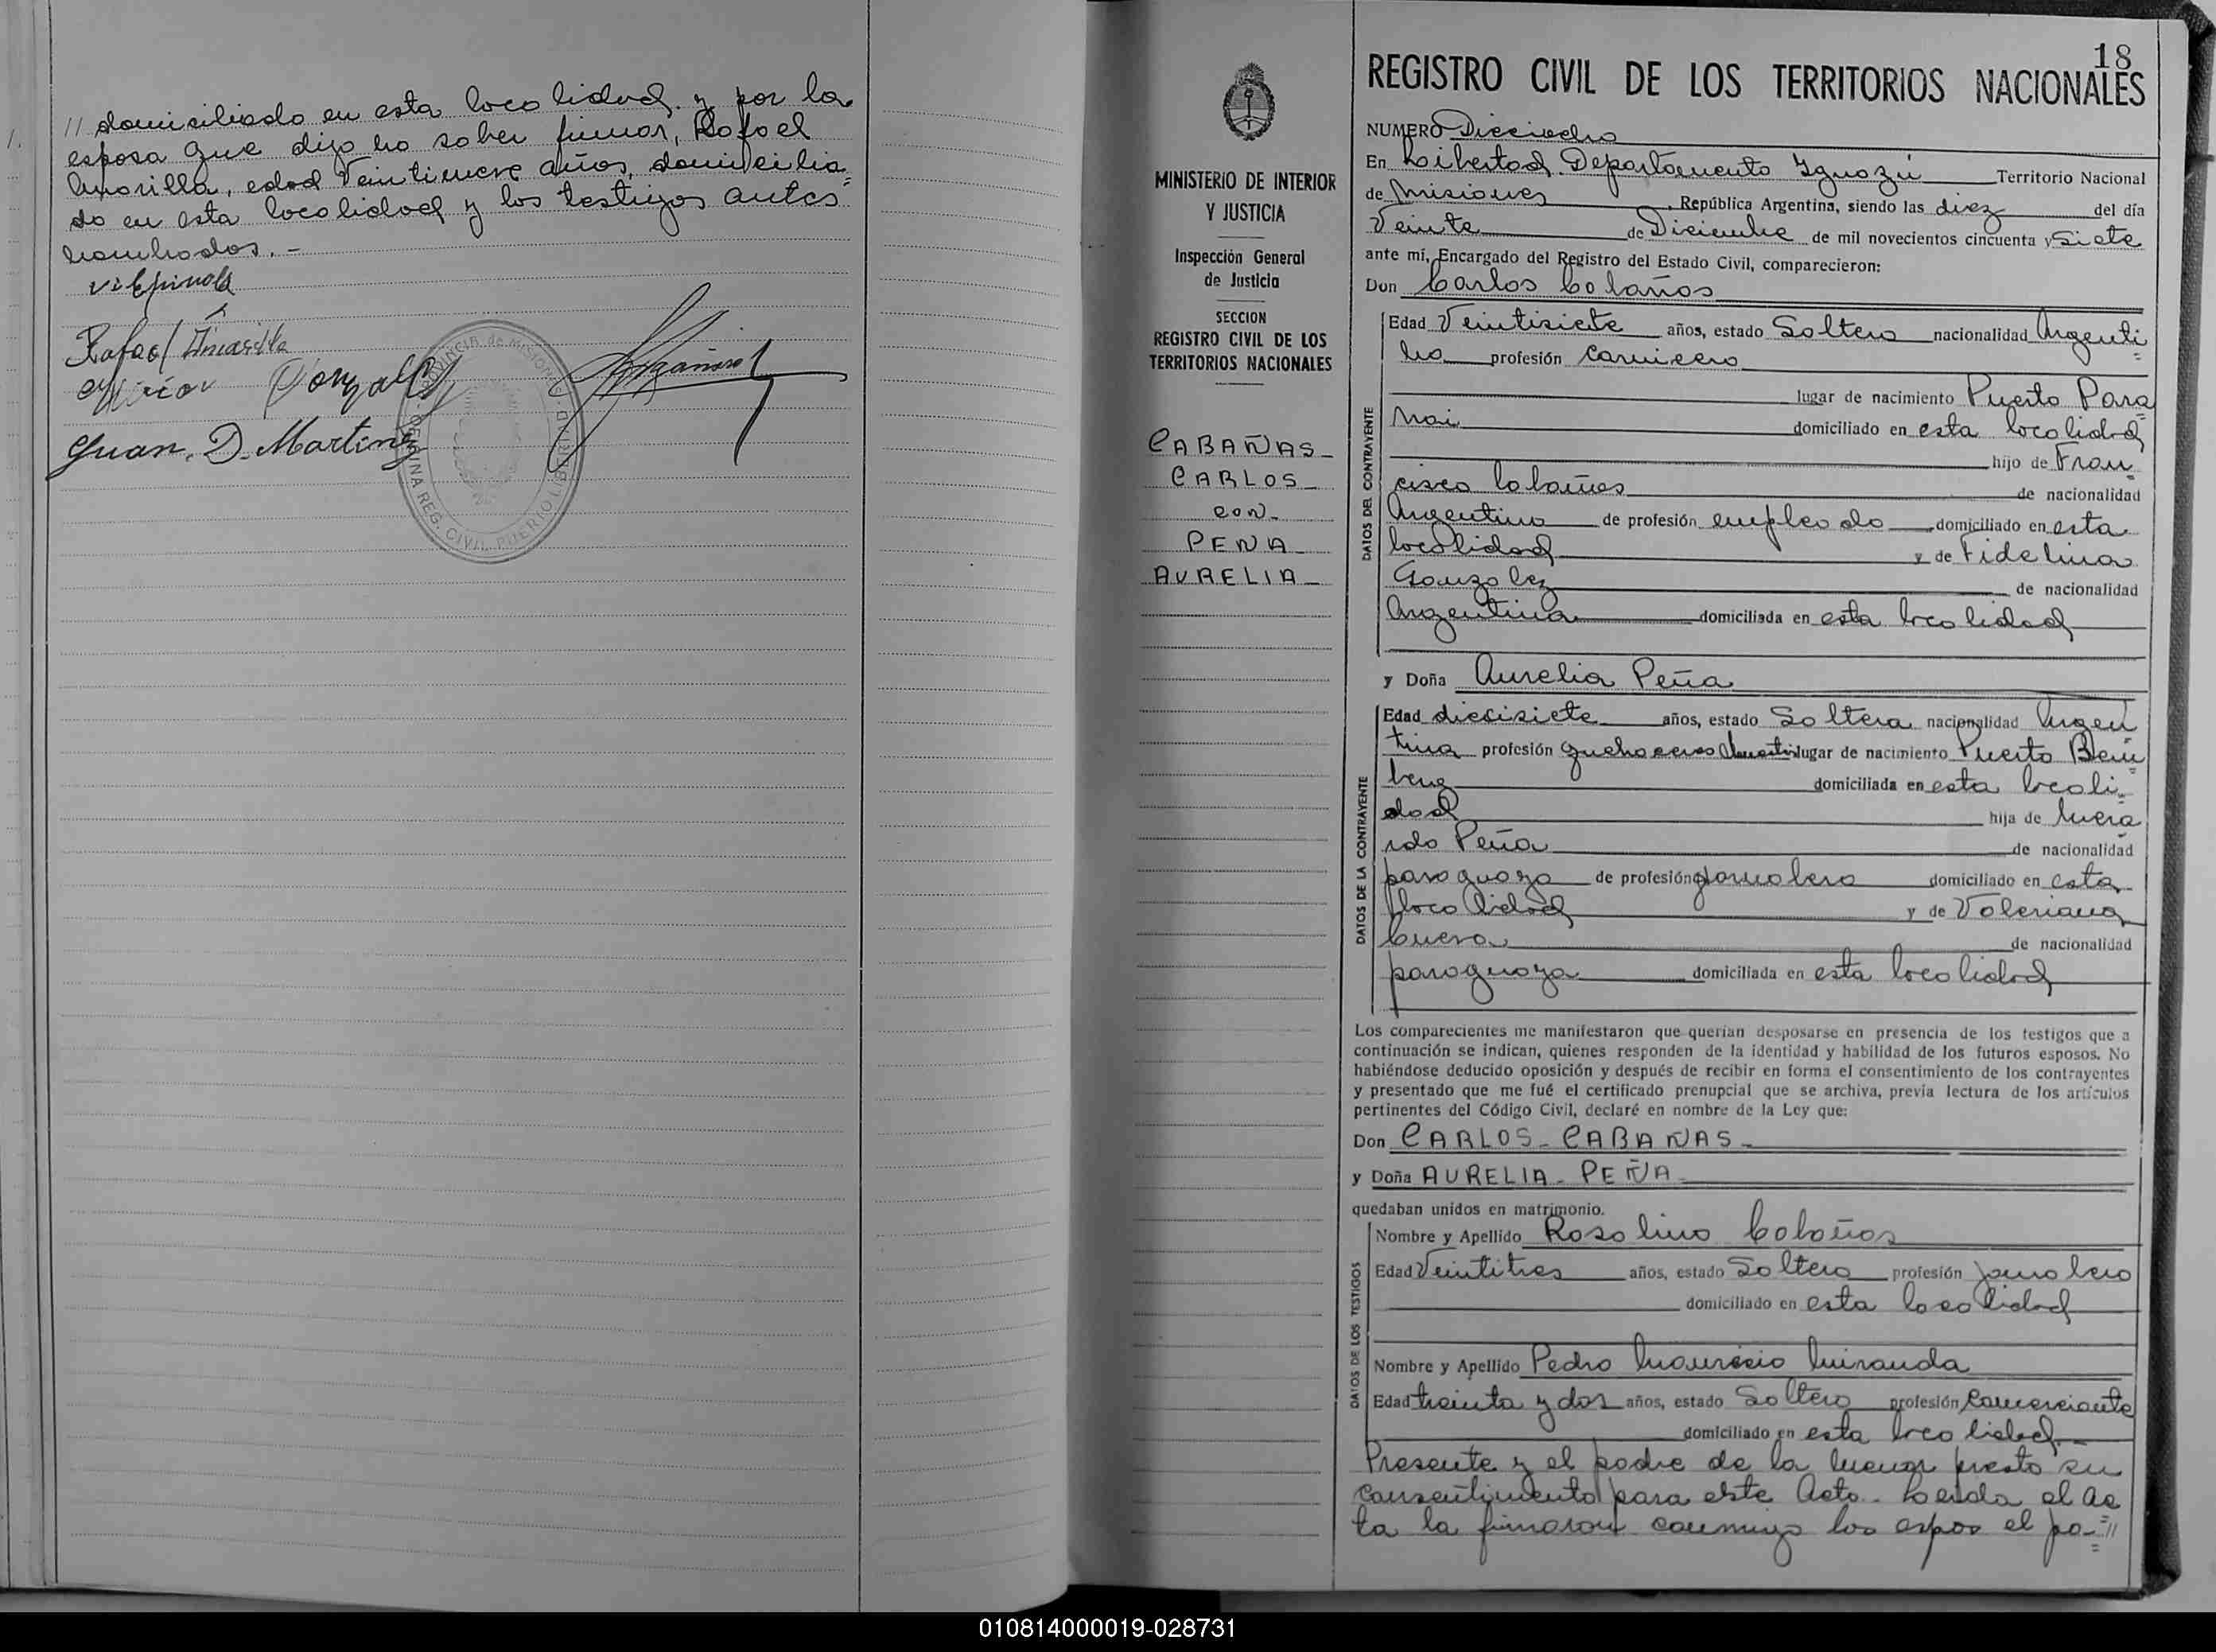 // domiciliado en esta localidad. y por la
esposa que dijo no saber firmar, Rafael
Amarilla, edad Veintinueve años, domicilia=
do en esta localidad y los testigos antes
nombrados. -
V. Espinola
Rafael Amarilla
Gonzalez
Juan. D. Martinez
PROVINCIA de MISIONES
OFICINA REG. CIVIL PUERTO LIBERTAD
18
REGISTRO CIVIL DE LOS TERRITORIOS NACIONALES
MINISTERIO DE INTERIOR
Y JUSTICIA
Inspección General
de Justicia
SECCION
REGISTRO CIVIL DE LOS
TERRITORIOS NACIONALES
CABAÑAS_
CARLOS_
con_
PEÑA_
AURELIA_
NUMERO Dieciocho
En Libertad. Departamento Iguazú Territorio Nacional
de Misiones, República Argentina, siendo las diez del día
Veinte de Diciembre de mil novecientos cincuenta y Siete
ante mí, Encargado del Registro del Estado Civil, comparecieron:
Don Carlos Cabañas
DATOS DEL CONTRAYENTE
Edad Veintisiete años, estado Soltero nacionalidad Argenti=
no profesión Carnicero
lugar de nacimiento Puerto Para=
nai domiciliado en esta localidad
hijo de Fran=
cisco Cabañas de nacionalidad
Argentino de profesión empleado domiciliado en esta
localidad y de Fidelina
Gonzalez de nacionalidad
Argentina domiciliada en esta localidad
y Doña Aurelia Peña
DATOS DE LA CONTRAYENTE
Edad diecisiete años, estado Soltera nacionalidad Argen=
tina profesión quehaceres lugar de nacimiento Puerto Bem=
berg domiciliada en esta locali=
dad hija de
Peña de nacionalidad
paraguaya de profesión jornalero domiciliado en esta
localidad y de Valeriana
de nacionalidad
paraguaya domiciliada en esta localidad
Los comparecientes me manifestaron que querían desposarse en presencia de los testigos que a
continuación se indican, quienes responden de la identidad y habilidad de los futuros esposos. No
habiéndose deducido oposición y después de recibir en forma el consentimiento de los contrayentes
y presentado que me fué el certificado prenupcial que se archiva, previa lectura de los artículos
pertinentes del Código Civil, declaré en nombre de la Ley que:
Don CARLOS_CABAÑAS_
y Doña AURELIA_PEÑA_
quedaban unidos en matrimonio.
DATOS DE LOS TESTIGOS
Nombre y Apellido Rosalino Cabañas
Edad Veintitres años, estado Soltero profesión jornalero
domiciliado en esta localidad
Nombre y Apellido Pedro Mauricio Miranda
Edad treinta y dos años, estado Soltero profesión Comerciante
domiciliado en esta localidad. -
Presente y el padre de la menor presto su
consentimiento para este Acto. Leida el ac
ta la firmaron conmigo los espos el pa=//
010814000019-028731